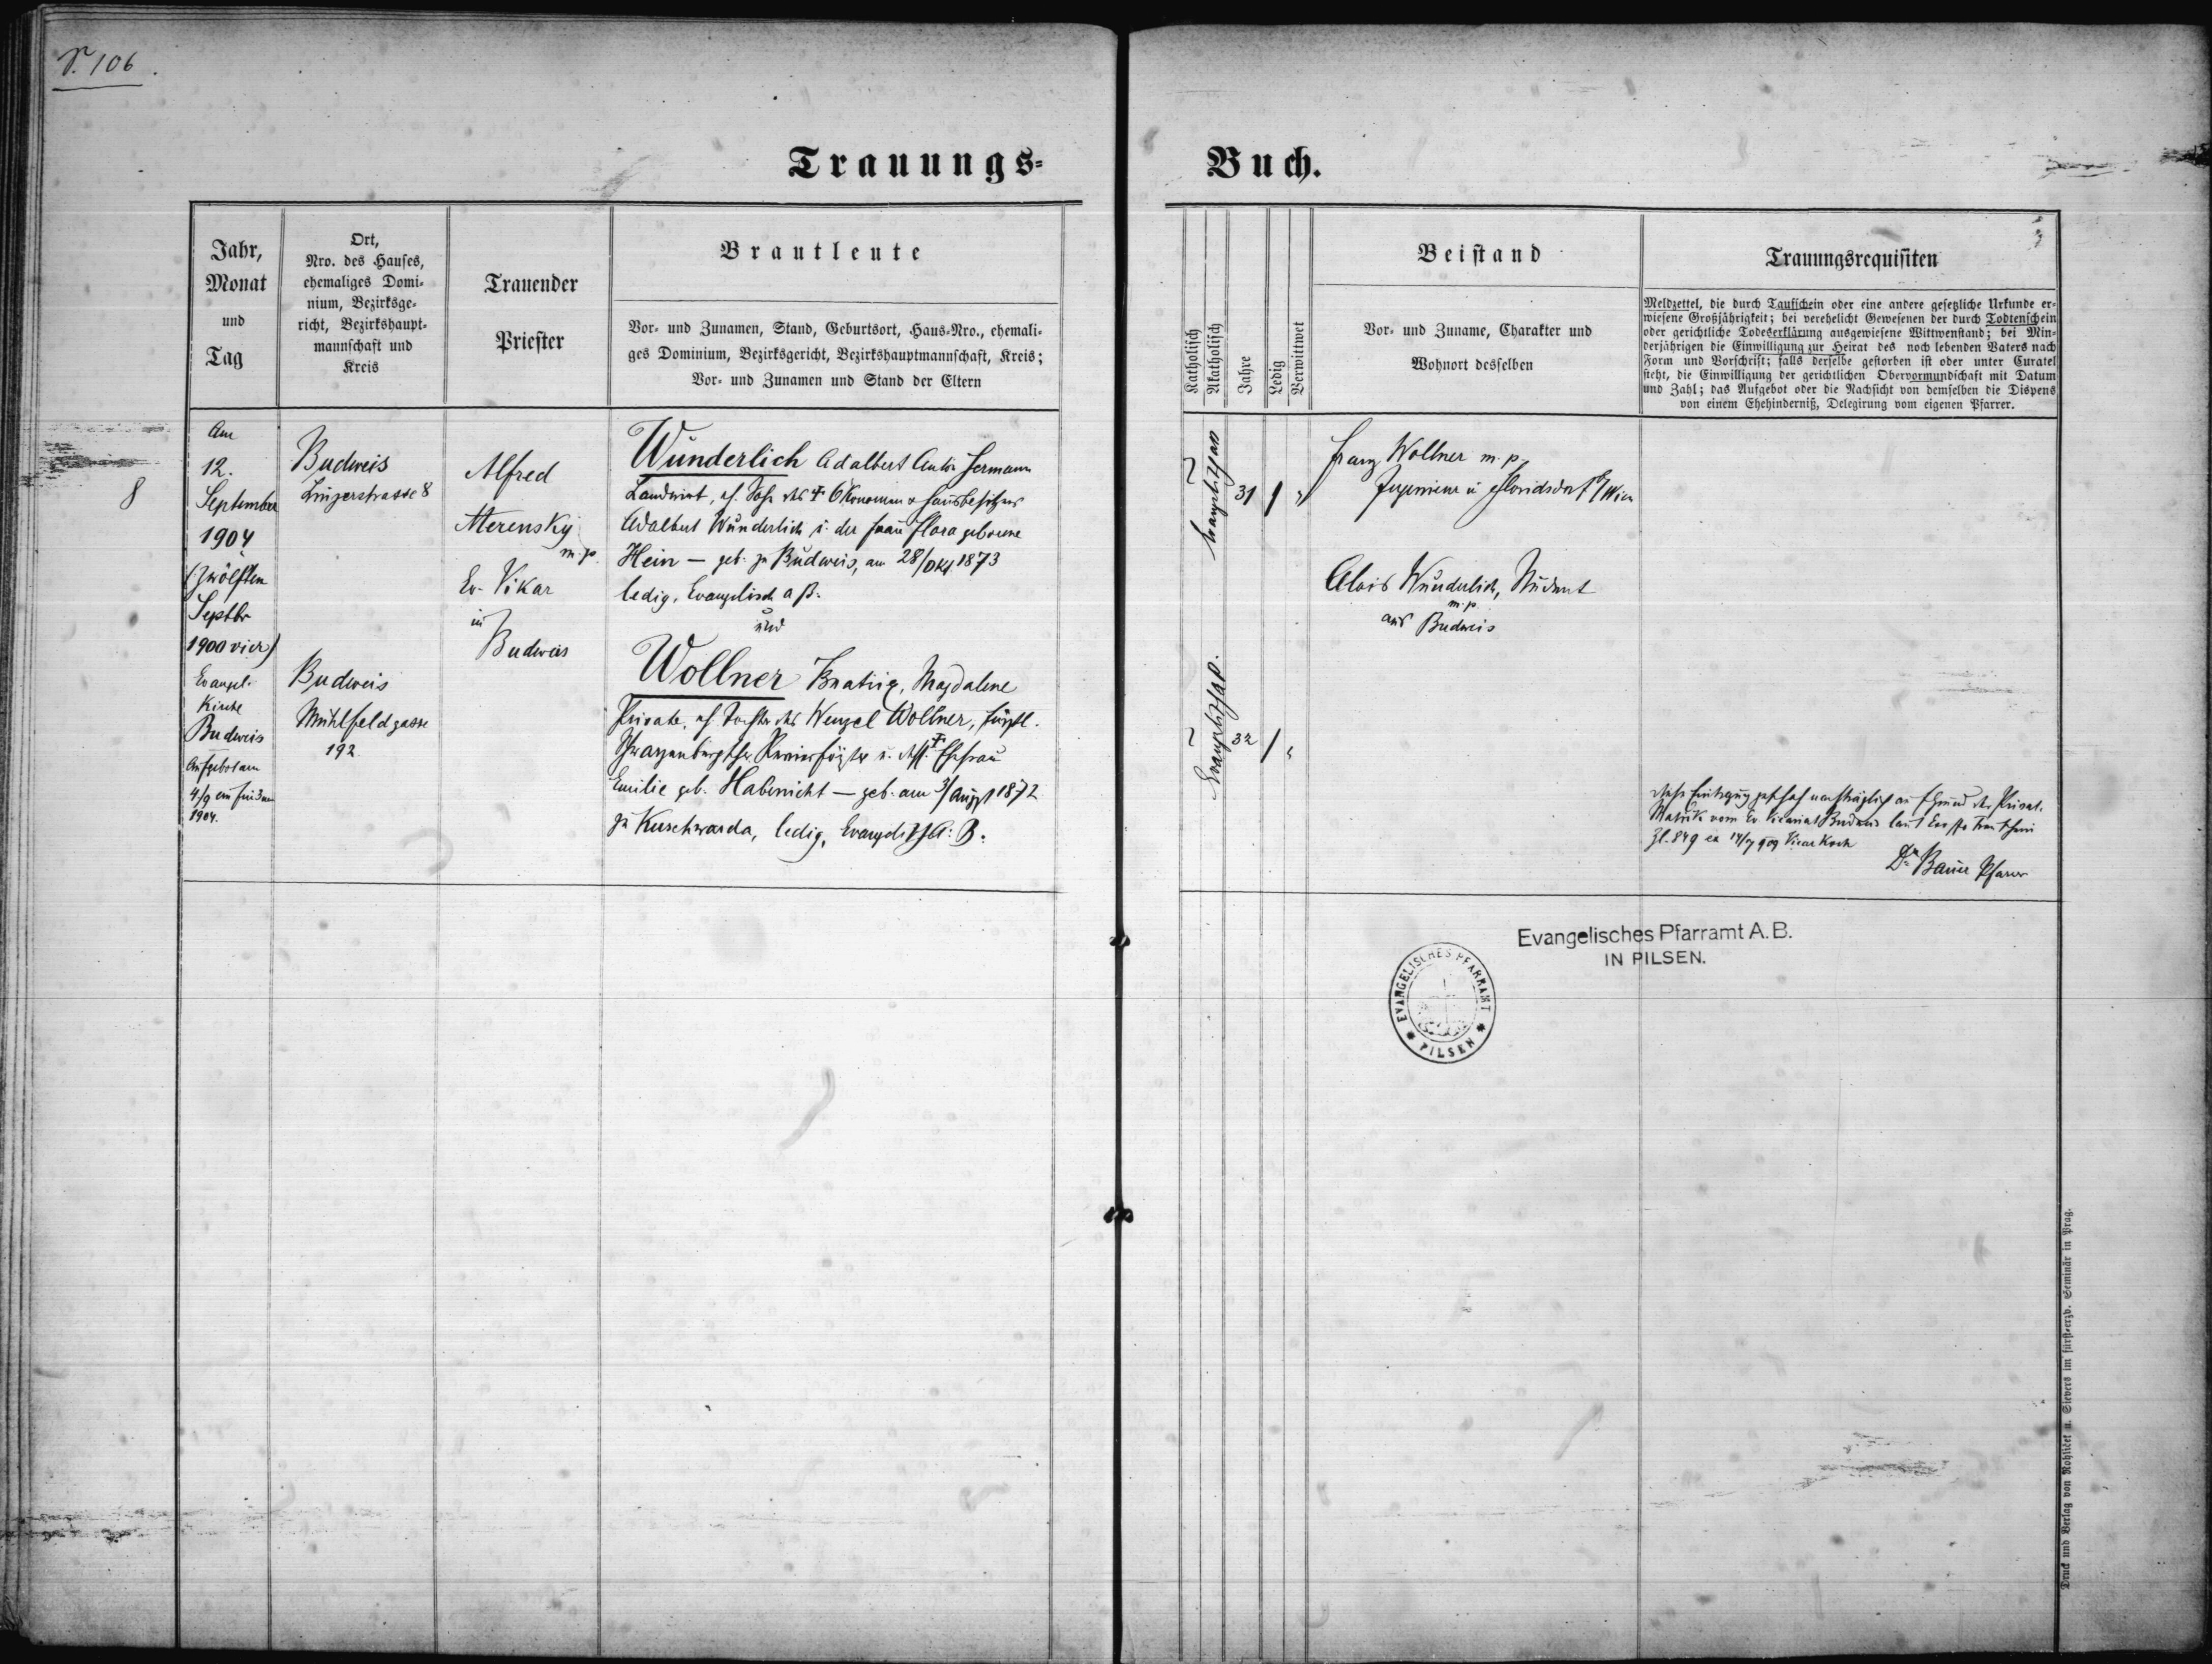 S. 106.
Trauungs-
Buch.
Jahr,
Monat
und
Tag
Ort,
Nro. des Hauses,
ehemaliges Domi-
nium, Bezirksge-
richt, Bezirkshaupt-
mannschaft und
Kreis
Trauender
Priester
Brautleute
Vor- und Zunamen, Stand, Geburtsort, Haus-Nro., ehemali-
ges Dominium, Bezirksgericht, Bezirkshauptmannschaft, Kreis;
Vor- und Zunamen und Stand der Eltern
Katholisch
Akatholisch
Jahre
Ledig
Verwittwet
Beistand
Vor- und Zuname, Charakter und
Wohnort desselben
Trauungsrequisiten
Meldzettel, die durch Taufschein oder eine andere gesetzliche Urkunde er-
wiesene Großjährigkeit; bei verehelicht Gewesenen der durch Todtenschein
oder gerichtliche Todeserklärung ausgewiesene Wittwenstand; bei Min-
derjährigen die Einwilligung zur Heirat des noch lebenden Vaters nach
Form und Vorschrift; falls derselbe gestorben ist oder unter Curatel
steht, die Einwilligung der gerichtlichen Obervormundschaft mit Datum
und Zahl; das Aufgebot oder die Nachsicht von demselben die Dispens
von einem Ehehinderniß, Delegirung vom eigenen Pfarrer.
8
Am
12.
September
1904
(Zwölften
Septbr
1900 vier)
Evangel.
Kirche
Budweis
Aufgebot am
4/9
1904.
Budweis
Linzerstrasse 8
Budweis
Mühlfeldgasse
192
Alfred
Merensky
m. p.
Ev. Vikar
in
Budweis
Wunderlich Adalbert Anton Hermann
Landwirt, eh. Sohn des † Ökonomen & Hausbesitzers
Adalbert Wunderlich u. der Frau Flora geborene
Hein — geb. zu Budweis, am 28/Okt 1873
ledig, Evangelisch a B.
und
Wollner Beatrix, Magdalene
Private, eh. Tochter des Wenzel Wollner, fürstl.
Schwarzenburgscher Revierförster u. dess. † Ehefrau
Emilie geb. Habenicht — geb. am 3/August 1872
zu Kuschwarda, ledig, Evangelisch A. B.
Evangelisch AB
31
1
"
Evangelisch AB.
32
1
"
Franz Wollner m. p.,
Ingenieur in Floridsdorf b/Wien
Alois Wunderlich, Student
m. p.
aus Budweis
Diese Eintragung geschah nachträglich auf Grund der Privat-
Matrik vom Ev. Vicariat Budweis laut
Zl. 849 ex 14/7 909 Vicar Koch
Dr Bauer Pfarrer
Evangelisches Pfarramt A. B.
IN PILSEN.
EVANGELISCHES PFARRAMT
* PILSEN *
Druck und Verlag von Rohlíček u. Sievers im fürst-erzb. Seminär in Prag.